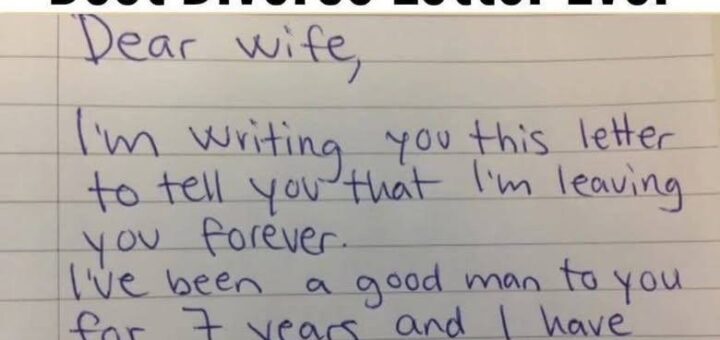 Best Divorce Letter Ever
Dear wife,
I'm writing you this letter
to tell you that I'm leaving
you forever.
I've been a good man to you
for 7 years and I have